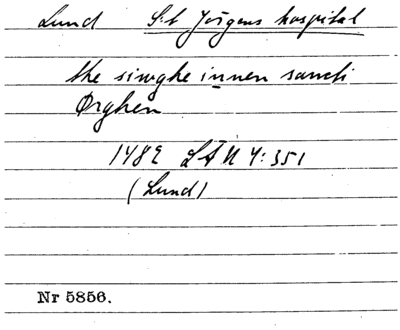 Lund S:t Jörgens hospital
the siwghe innen sancti
Ørghen
1482 LÄU 4:351
(Lund)
Nr 5856.